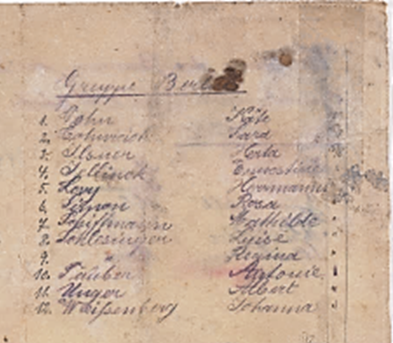 Gruppe Berlin
1. John Käte
2. Sara
3. Ilsner Herta
4. Ernestine
5. Levy Hermann
6. Simon Rosa
7. Schiffmann Mathilde
8. Schlesinger Luise
9. " Regina
10. Täuber Antonie
11. Unger Albert
12. Weissenberg Johanna